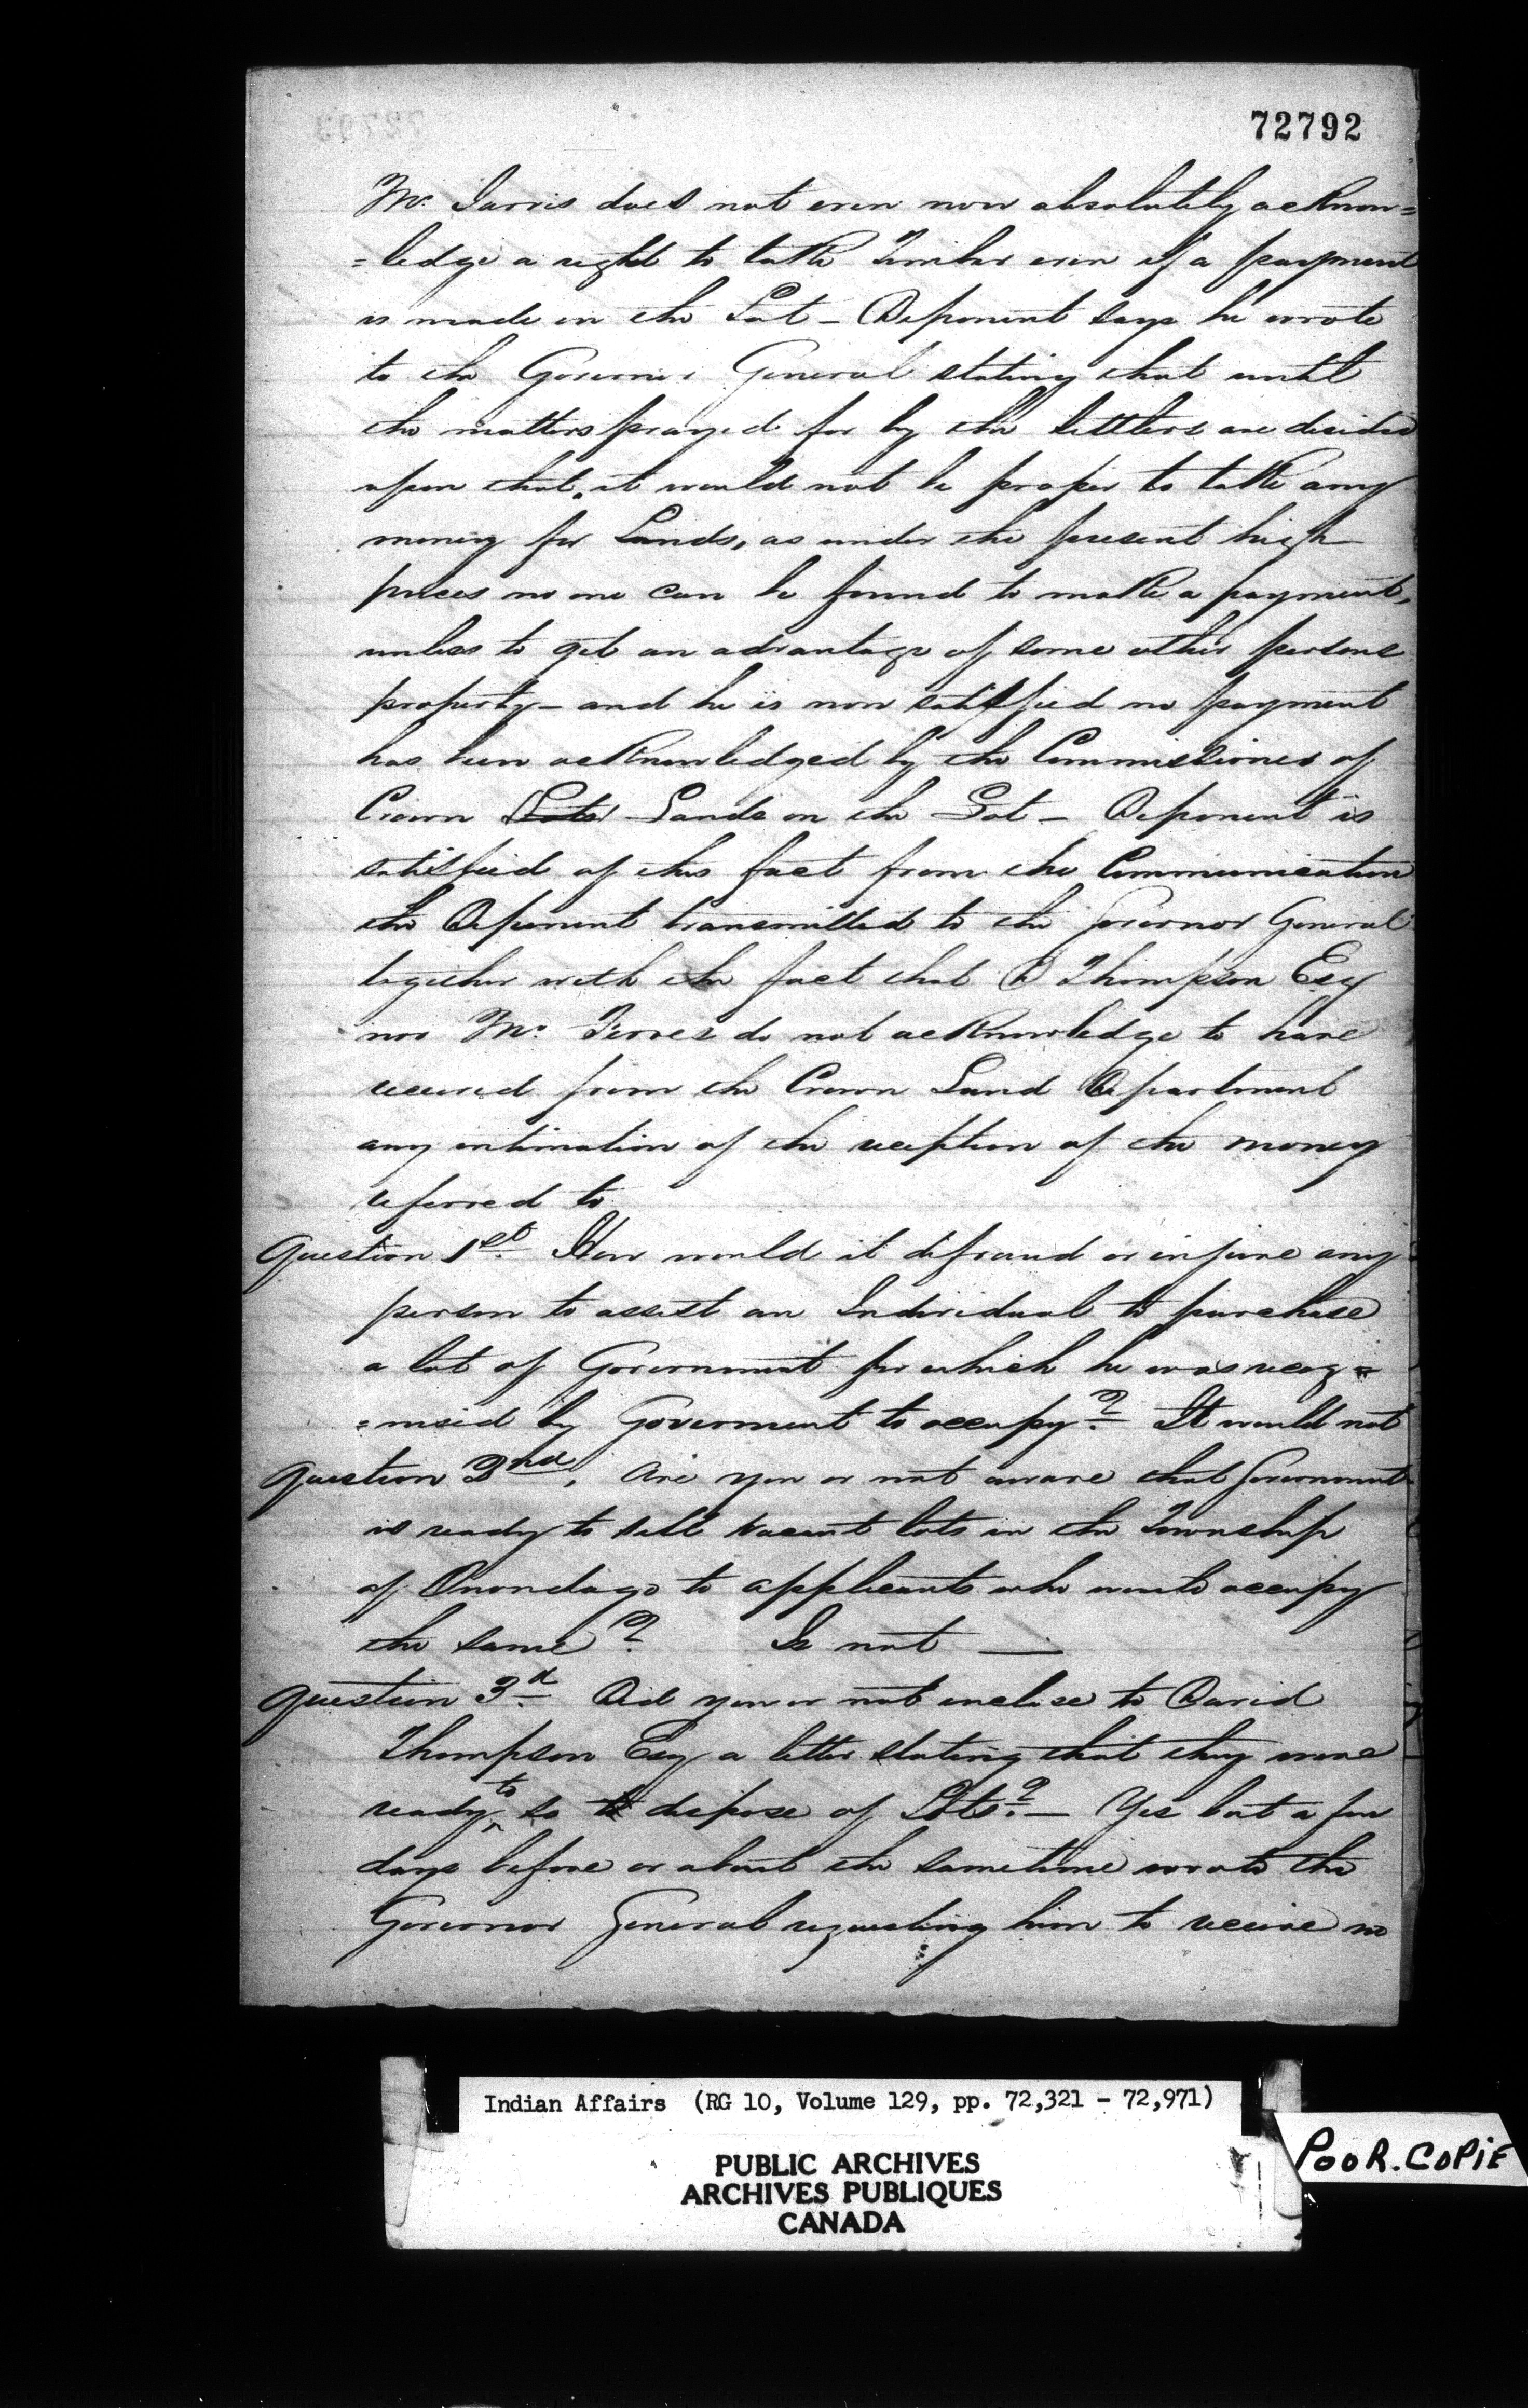 72792
Mr. Jarvis does not even now absolutely acknow=
=ledge a right to take Timber even if a payment
is made on the Lot - Deponent says he wrote
to the Governor General stating that until
the matters prayed for by the settlers are decided
upon that, it would not be proper to take any
money for Lands, as under the present high
prices no one can be found to make a payment,
unless to get an advantage of some other persons
property - and he is now satisfied no payment
has been acknowledged by the Commissioner of
Crown Lots Lands on the Lot - Deponent is
satisfied of this fact from the Communication
the Deponent transmitted to the Governor General
together with the fact that D Thompson Esq
nor Mr. Jarves do not acknowledge to have
received from the Crown Land Department
any intimation of the reception of the money
referred to
Question 1st. How would it defraud or injure any
person to assist an Individual to purchase
a lot of Government for which he was recog=
=nised by Goverment to occupy? It would not
Question 2nd, Are you or not aware that Government
is ready to sell vacant lots in the Township
of Onondaga to applicants who wants occupy
the same? Is not —
Question 3d. Did you or not enclose to David
Thompson Esq a letter stating that they were
ready to so to dispose of Lots? - Yes but a few
days before or about the sametime wrote the
Governor General requesting him to receive no
Indian Affairs (RG 10, Volume 129, pp. 72,321 - 72,971)
PUBLIC ARCHIVES
ARCHIVES PUBLIQUES
CANADA
POOR.COPIE